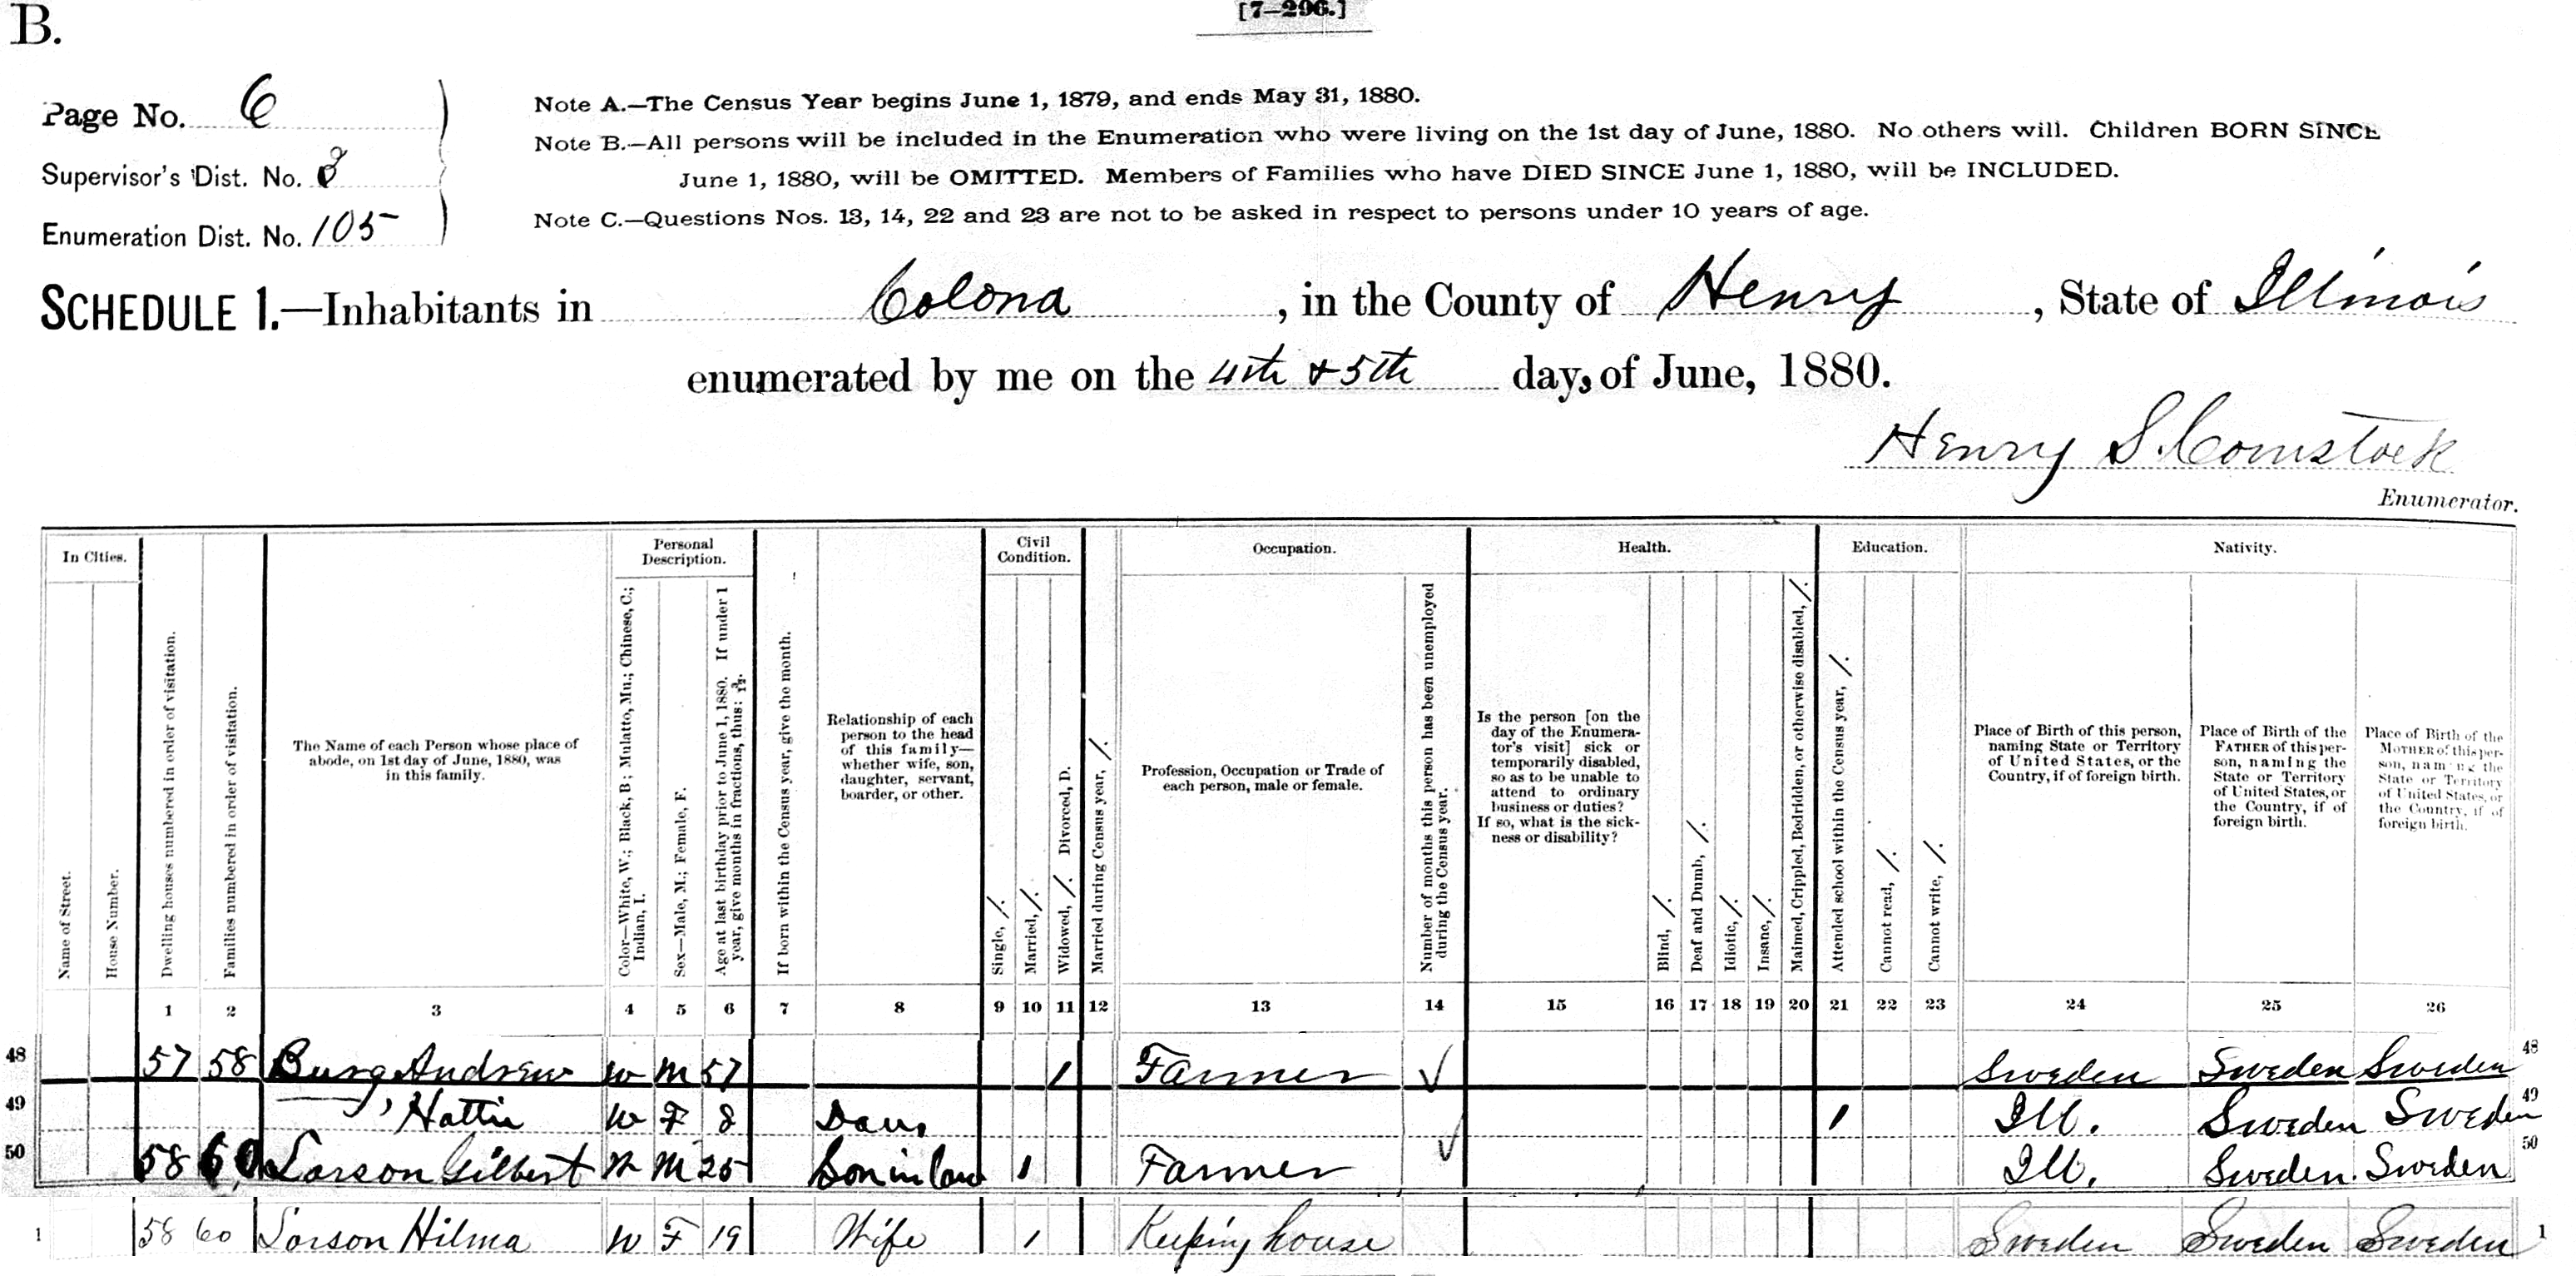 B.
[7—296.]
Page No. 6
Supervisor's Dist. No. 3
Enumeration Dist. No. 105
Note A.—The Census Year begins June 1, 1879, and ends May 31, 1880.
Note B.—All persons will be included in the Enumeration who were living on the 1st day of June, 1880. No others will. Children BORN SINCE
June 1, 1880, will be OMITTED. Members of Families who have DIED SINCE June 1, 1880, will be INCLUDED.
Note C.—Questions Nos. 13, 14, 22 and 23 are not to be asked in respect to persons under 10 years of age.
SCHEDULE 1.—Inhabitants in Colona, in the County of Henry, State of Illinois
enumerated by me on the 4th & 5th days of June, 1880.
Henry S. Comstock
Enumerator.
In Cities.
Name of Street.
House Number.
Dwelling houses numbered in order of visitation.
Families numbered in order of visitation.
The Name of each Person whose place of
abode, on 1st day of June, 1880, was
in this family.
Personal
Description.
Color—White, W.; Black, B; Mulato, Mu.; Chinese, C.;
Indian, I.
Sex—Male, M.; Female, F.
Age at last birthday prior to June 1, 1880. If under 1
year, give months in fractions, thus: 3/12.
If born within the Census year, give the month.
Relationship of each
person to the head
of this family—
whether wife, son,
daughter, servant,
boarder, or other.
Civil
Condition.
Single, /.
Married, /.
Widowed, /. Divorced, D.
Married during Census year, /.
Occupation.
Profession, Occupation or Trade of
each person, male or female.
Number of months this person has been unemployed
during the Census year.
Health.
Is the person [on the
day of the Enumera-
tor's visit] sick or
temporarily disabled,
so as to be unable to
attend to ordinary
business or duties?
If so, what is the sick-
ness or disability?
Blind, /.
Deaf and Dumb, /.
Idiotic, /.
Insane, /.
Maimed, Crippled, Bedridden, or otherwise disabled, /.
Education.
Attended school within the Census year, /.
Cannot read, /.
Cannot write, /.
Nativity.
Place of Birth of this person,
naming State or Territory
of United States, or the
Country, if of foreign birth.
Place of Birth of the
FATHER of this per-
son, naming the
State or Territory
of United States, or
the Country, if of
foreign birth.
Place of Birth of the
MOTHER of this per-
son, naming the
State or Territory
of United States, or
the Country, if of
foreign birth.
1 2 3 4 5 6 7 8 9 10 11 12 13 14 15 16 17 18 19 20 21 22 23 24 25 26
48 57 58 Burg Andrew W M 57 / Farmer ✓ Sweden Sweden Sweden 48
49 ——, Hattie W F 8 Dau. / Ill. Sweden Sweden 49
50 58 60 Larson Gilbert W M 25 Son in law / Farmer ✓ Ill. Sweden. Sweden 50
1 58 60 Larson Hilma W F 19 Wife / Keeping house Sweden Sweden Sweden 1